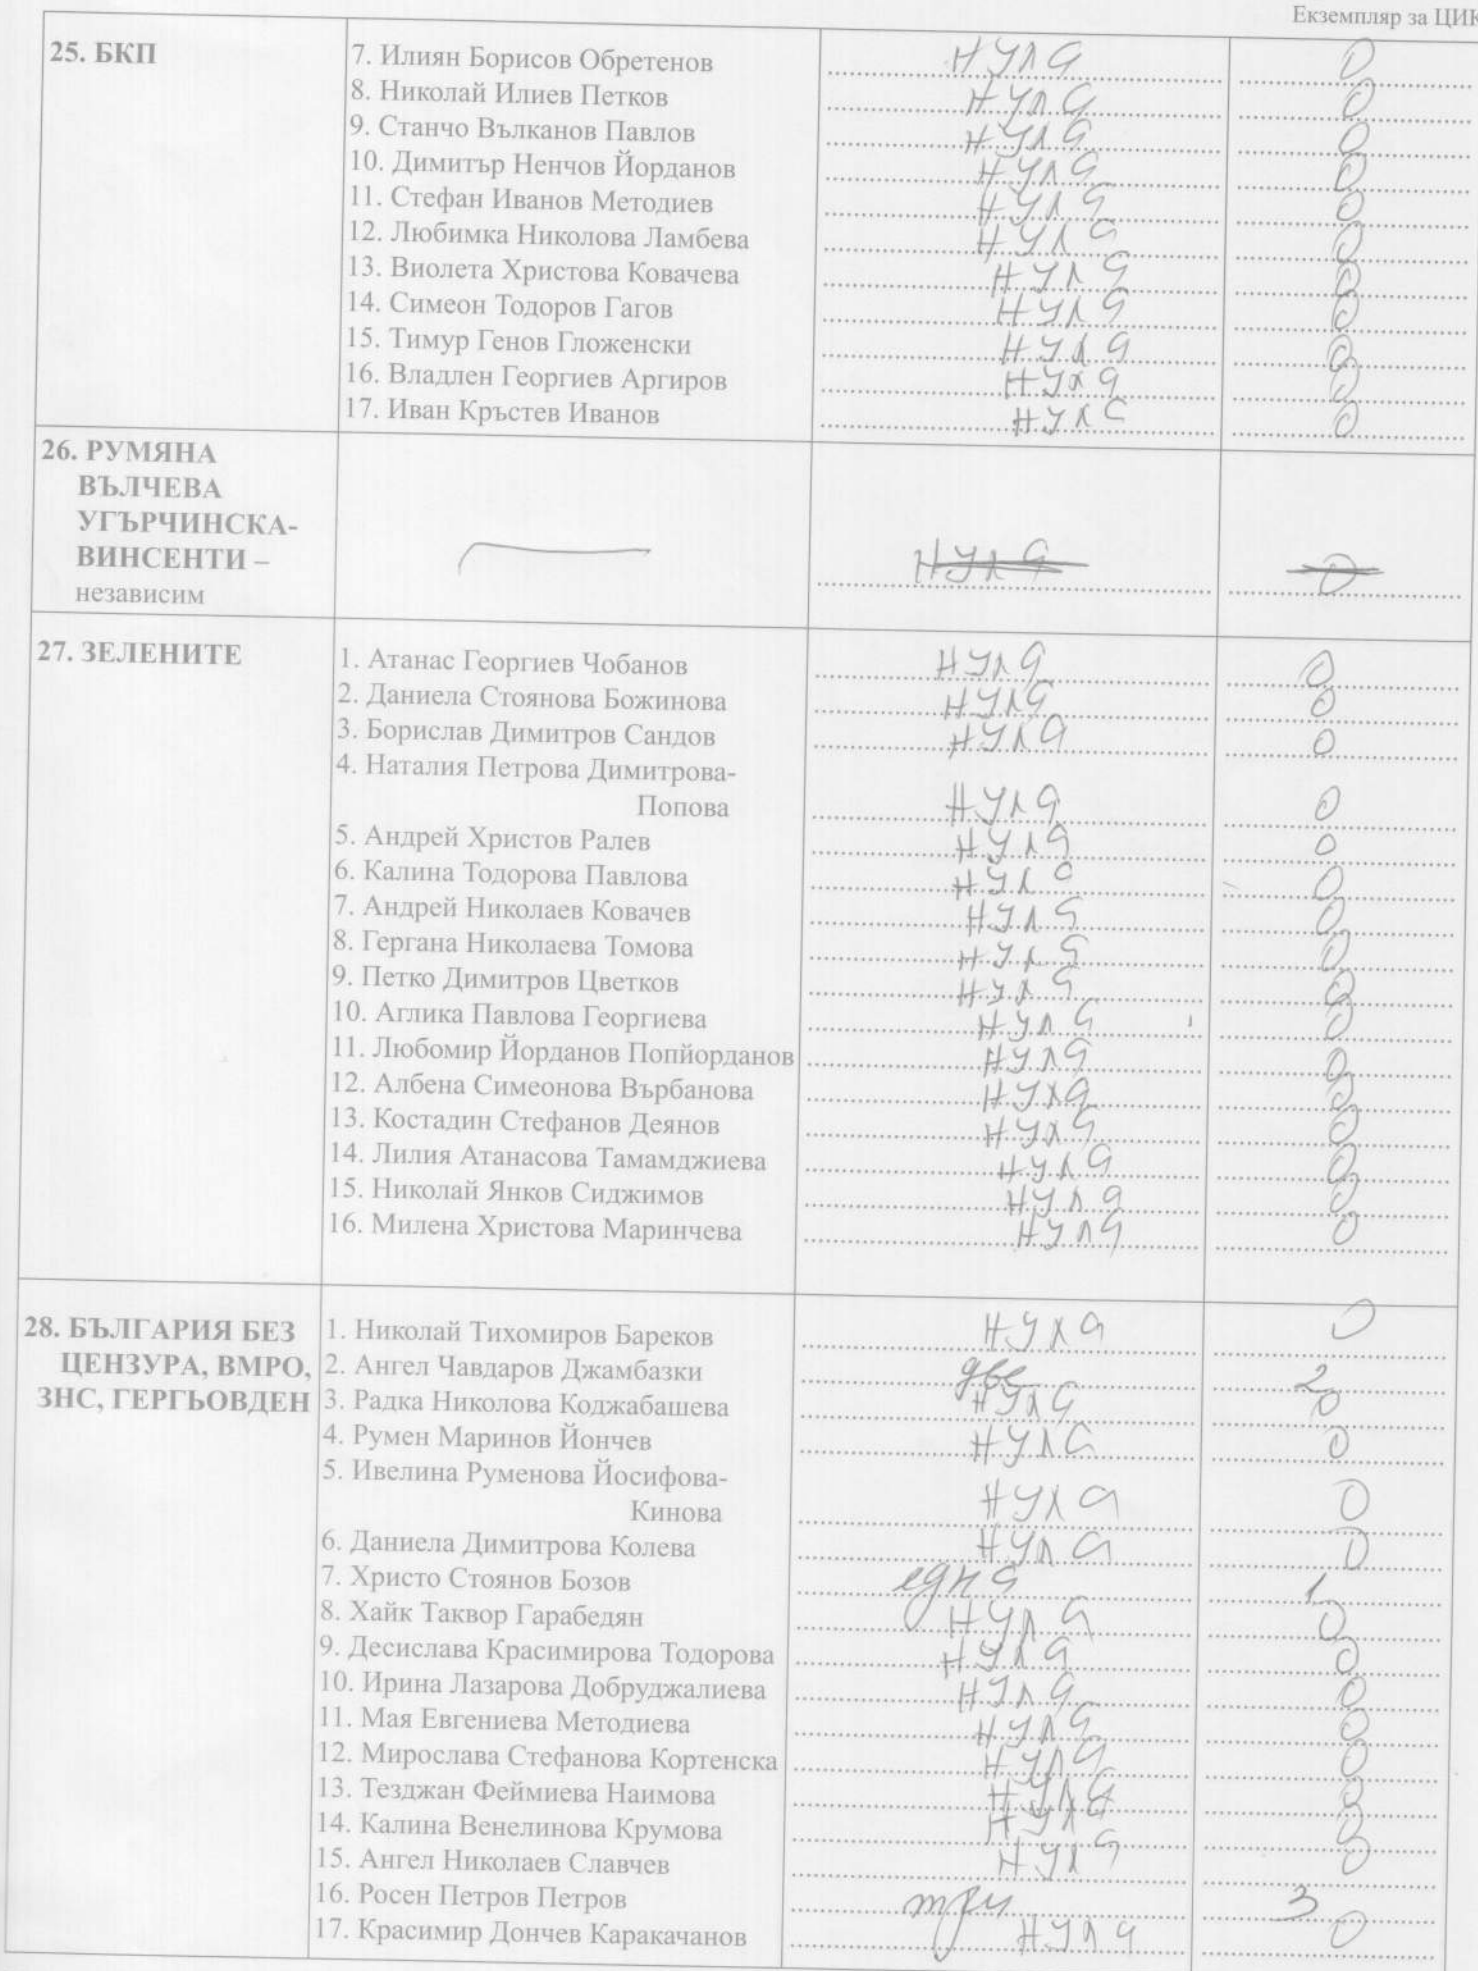 Екземпляр за ЦИК
25. БКП
7. Илиян Борисов Обретенов НУЛА 0
8. Николай Илиев Петков НУЛА 0
9. Станчо Вълканов Павлов НУЛА 0
10. Димитър Ненчов Йорданов НУЛА 0
11. Стефан Иванов Методиев НУЛА 0
12. Любимка Николова Ламбева НУЛА 0
13. Виолета Христова Ковачева НУЛА 0
14. Симеон Тодоров Гагов НУЛА 0
15. Тимур Генов Гложенски НУЛА 0
16. Владлен Георгиев Аргиров НУЛА 0
17. Иван Кръстев Иванов НУЛА 0
26. РУМЯНА
ВЪЛЧЕВА
УГЪРЧИНСКА-
ВИНСЕНТИ –
независим
НУЛА 0
27. ЗЕЛЕНИТЕ
1. Атанас Георгиев Чобанов НУЛА 0
2. Даниела Стоянова Божинова НУЛА 0
3. Борислав Димитров Сандов НУЛА 0
4. Наталия Петрова Димитрова-
Попова НУЛА 0
5. Андрей Христов Ралев НУЛА 0
6. Калина Тодорова Павлова НУЛА 0
7. Андрей Николаев Ковачев НУЛА 0
8. Гергана Николаева Томова НУЛА 0
9. Петко Димитров Цветков НУЛА 0
10. Аглика Павлова Георгиева НУЛА 0
11. Любомир Йорданов Попйорданов НУЛА 0
12. Албена Симеонова Върбанова НУЛА 0
13. Костадин Стефанов Деянов НУЛА 0
14. Лилия Атанасова Тамамджиева НУЛА 0
15. Николай Янков Сиджимов НУЛА 0
16. Милена Христова Маринчева НУЛА 0
28. БЪЛГАРИЯ БЕЗ
ЦЕНЗУРА, ВМРО,
ЗНС, ГЕРГЬОВДЕН
1. Николай Тихомиров Бареков НУЛА 0
2. Ангел Чавдаров Джамбазки две 2
3. Радка Николова Коджабашева НУЛА 0
4. Румен Маринов Йончев НУЛА 0
5. Ивелина Руменова Йосифова-
Кинова НУЛА 0
6. Даниела Димитрова Колева НУЛА 0
7. Христо Стоянов Бозов една 1
8. Хайк Таквор Гарабедян НУЛА 0
9. Десислава Красимирова Тодорова НУЛА 0
10. Ирина Лазарова Добруджалиева НУЛА 0
11. Мая Евгениева Методиева НУЛА 0
12. Мирослава Стефанова Кортенска НУЛА 0
13. Тезджан Феймиева Наимова НУЛА 0
14. Калина Венелинова Крумова НУЛА 0
15. Ангел Николаев Славчев НУЛА 0
16. Росен Петров Петров три 3
17. Красимир Дончев Каракачанов НУЛА 0